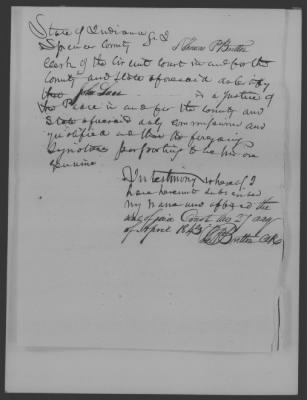 State of Indiana
Spencer County I Thomas P Britton
Clerk of the Circuit Court in and for the
County and State aforesaid do certify
that is a Justice of
the Peace in and for the County and
State aforesaid duly commissioned and
qualified and that the foregoing
Signature purporting to be his are
genuine
In testimony whereof I
have hereunto subscribed
my name and affixed the
seal of said Court this 27 day
of April 1845
Britton Clk